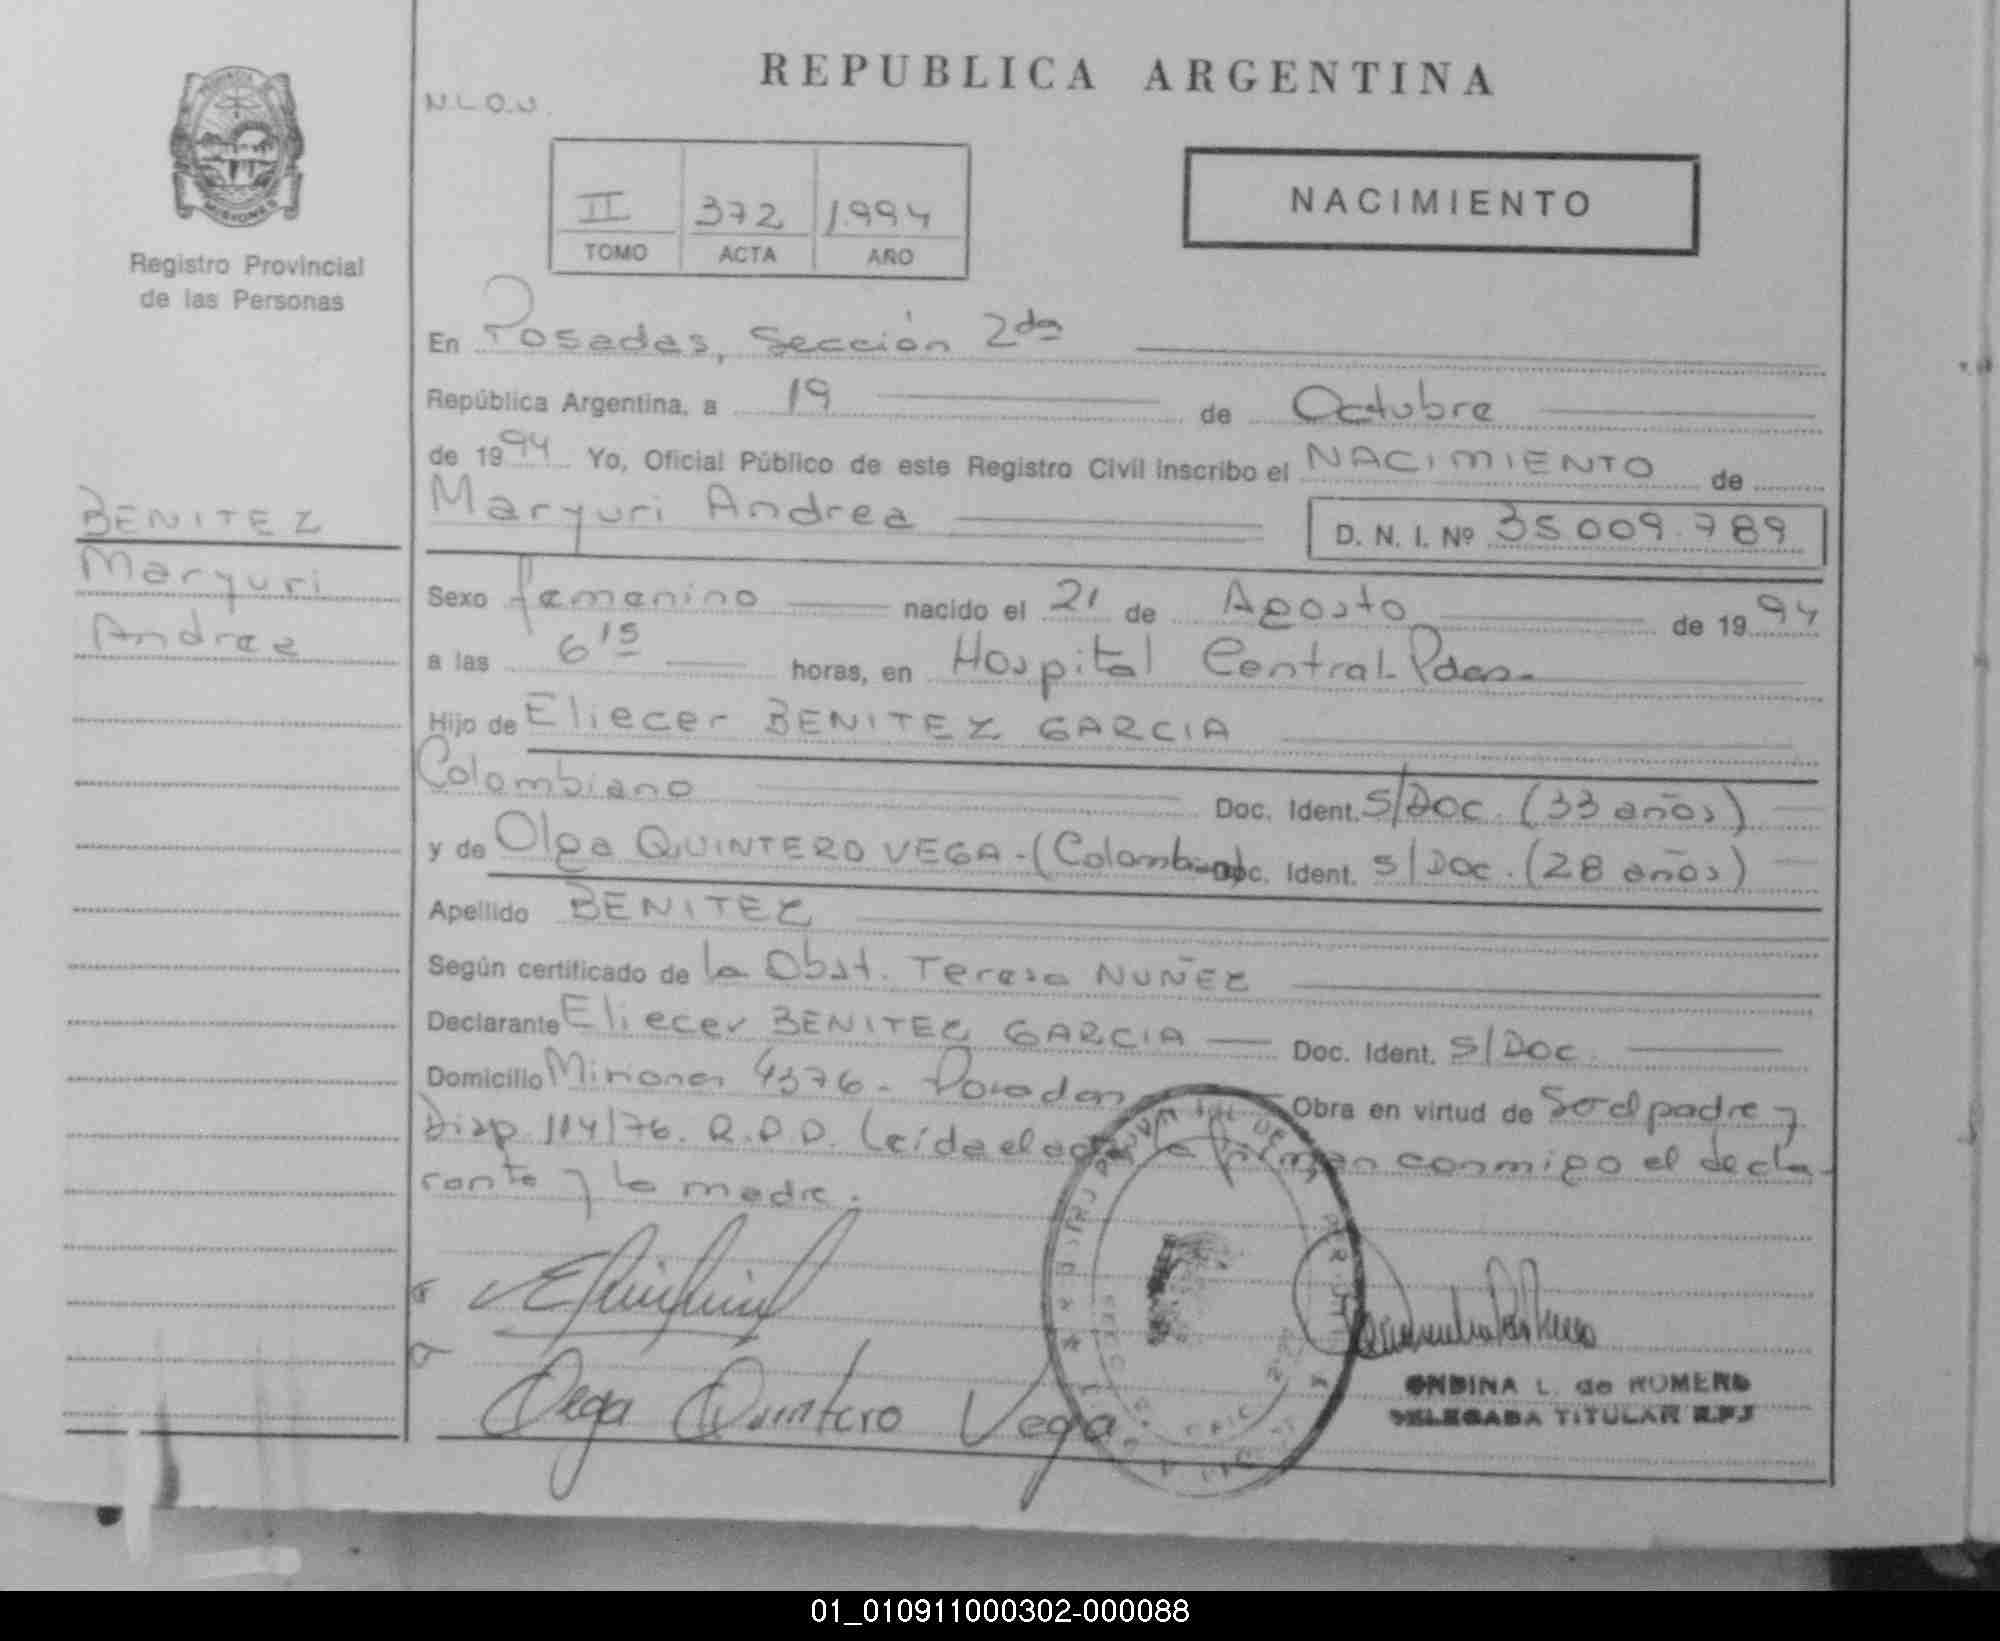 REPUBLICA ARGENTINA
MISIONES
Registro Provincial
de las Personas
N.L.O.U.
II 372 1.994
TOMO ACTA AÑO
NACIMIENTO
En Posadas, Sección 2da
República Argentina, a 19 de Octubre
de 1994 Yo, Oficial Público de este Registro Civil Inscribo el NACIMIENTO de
Maryuri Andrea D. N. I. Nº 35 009.789
BENITEZ
Maryuri
Andrea
Sexo femenino nacido el 21 de Agosto de 1994
a las 6 15 horas, en Hospital Central Pdas.
Hijo de Eliecer BENITEZ GARCIA
Colombiano Doc. Ident. S/Doc. (33 años)
y de Olga QUINTERO VEGA - (Colombiana) Doc. Ident. S/Doc. (28 años)
Apellido BENITEZ
Según certificado de la Obst. Teresa NUÑEZ
Declarante Eliecer BENITEZ GARCIA Doc. Ident. S/Doc.
Domicilio Misiones 4376 - Posadas Obra en virtud de Ser el padre y
Disp. 114/76. R.P.P. Leída el acta la firman conmigo el decla-
rante y la madre.
Olga Quintero Vega
ONDINA L. de ROMERO
DELEGADA TITULAR R.P.J
01_010911000302-000088